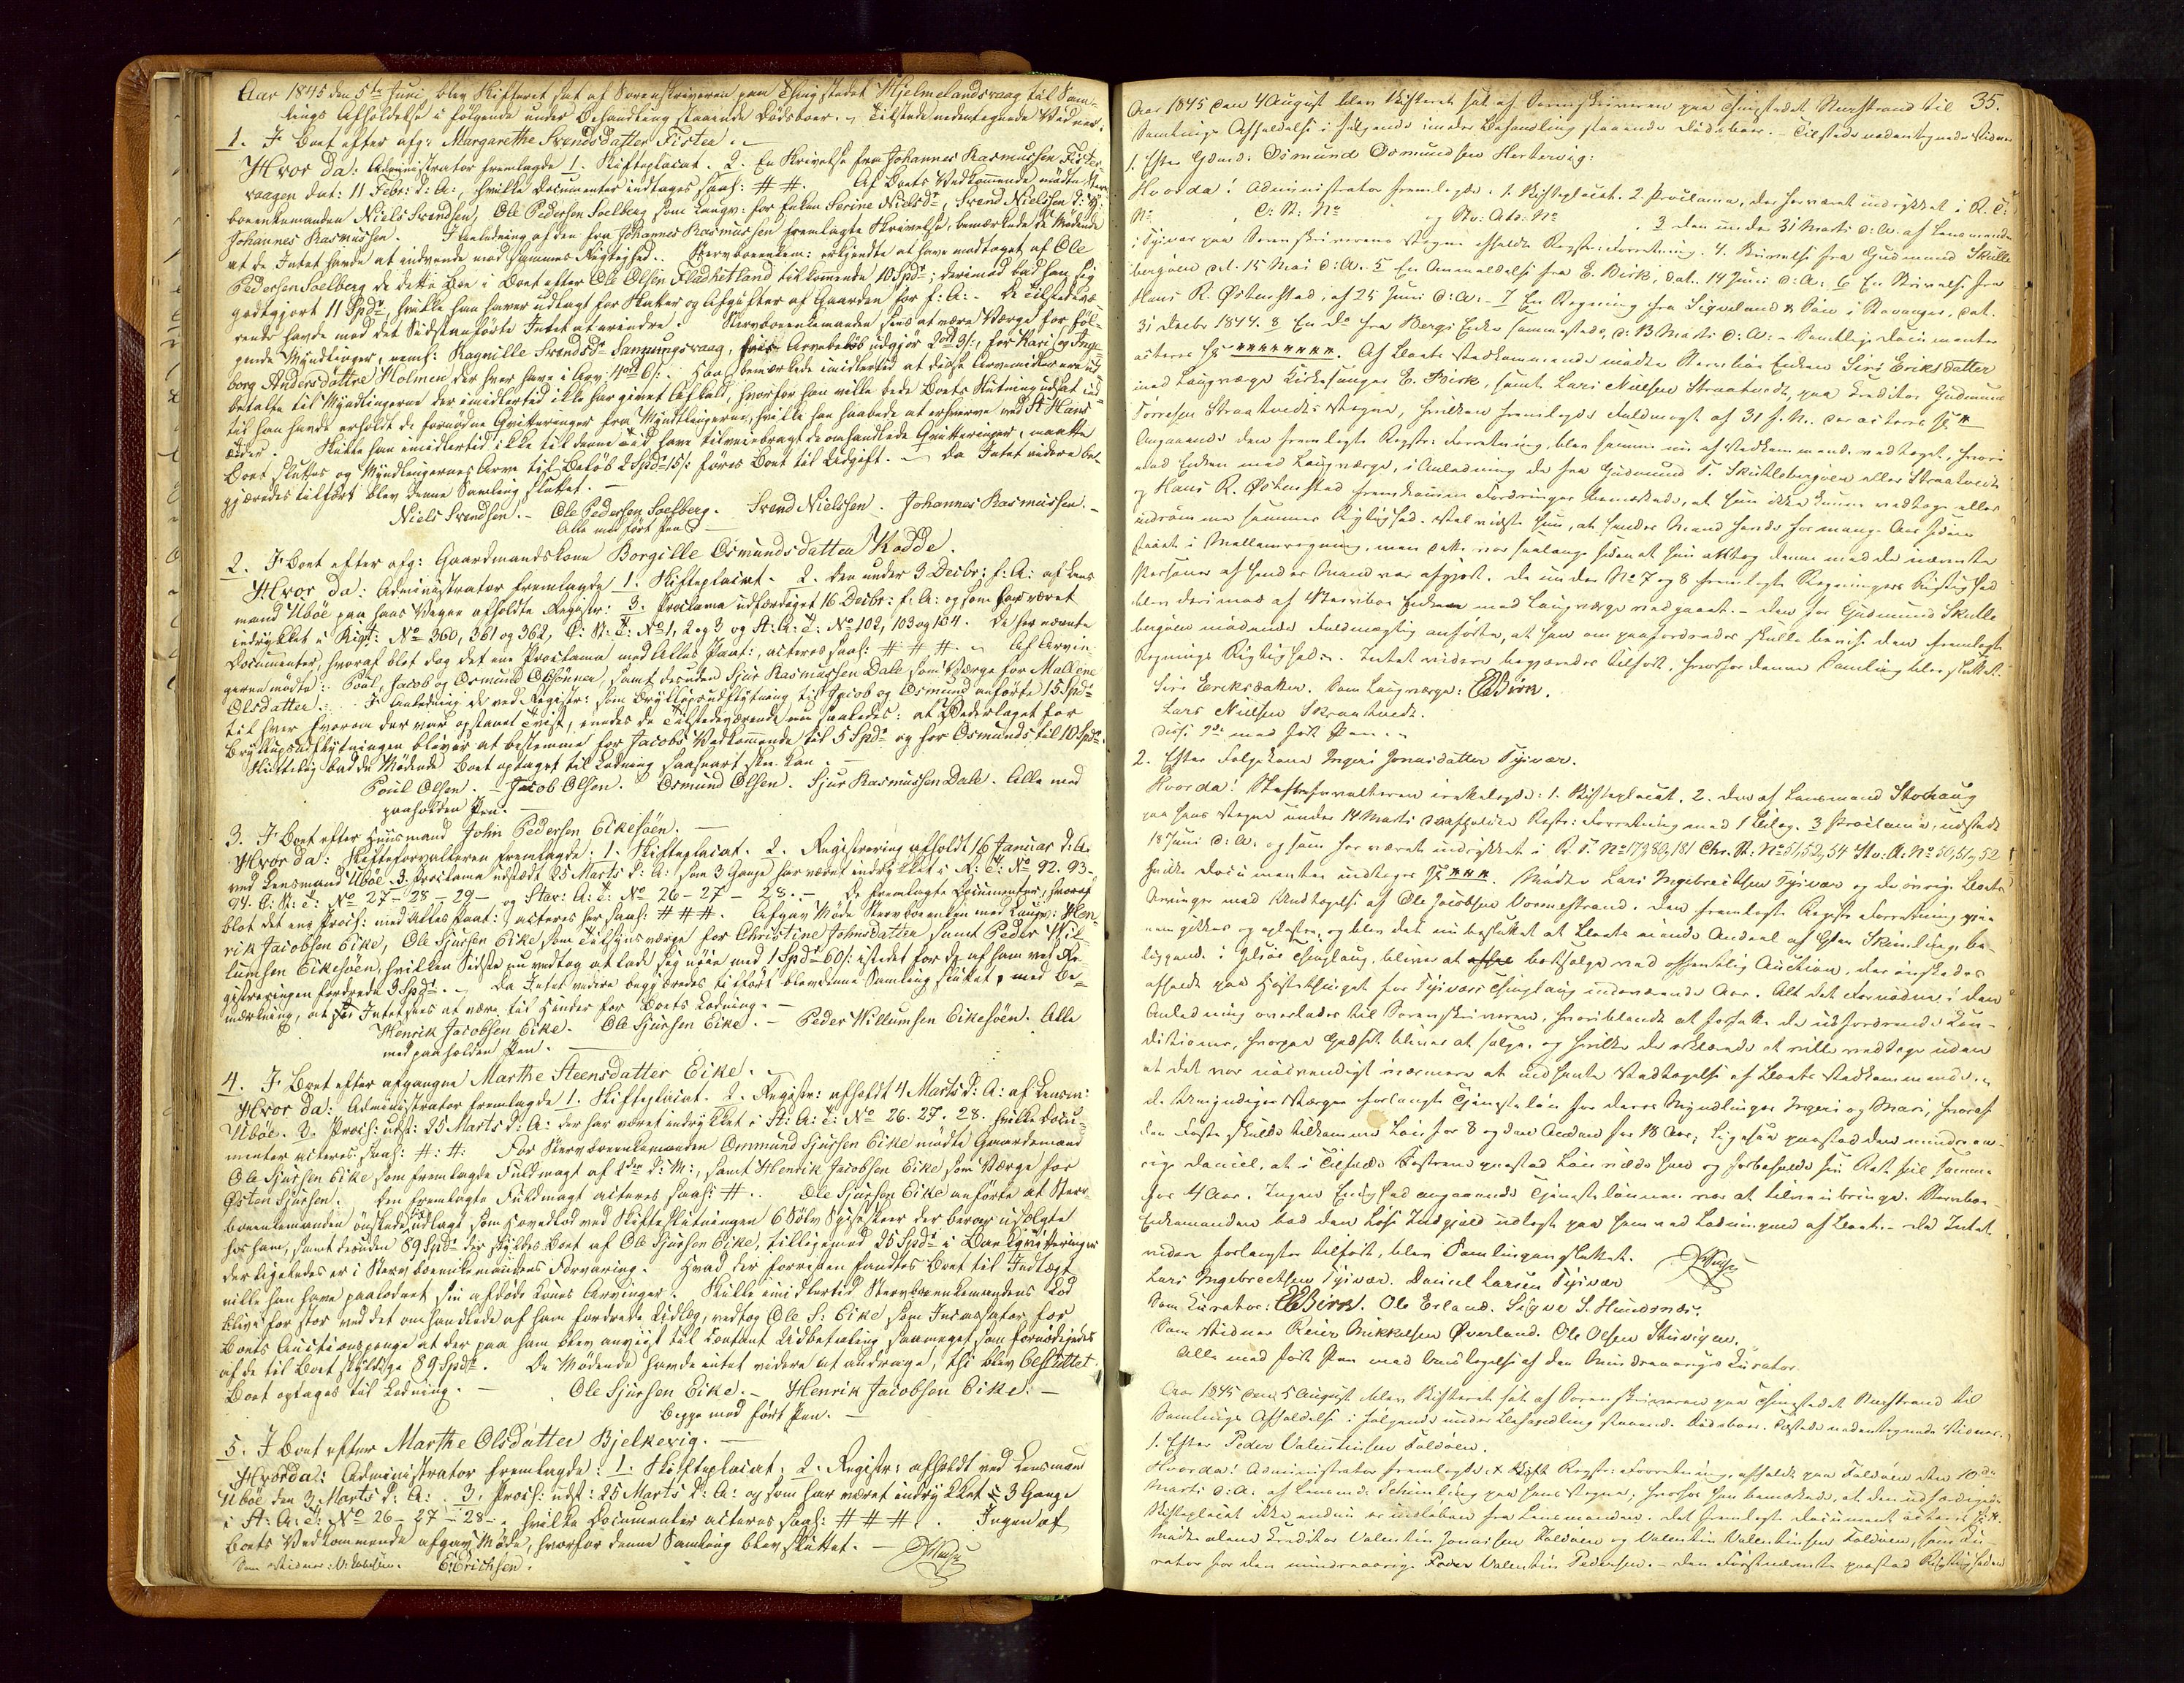 Aar 1845 den 5te Juni blev Skifteret sat af Sorenskriveren paa Thingstedet Hjelmelandsvaag til Sam-
lings Afholdelse i følgende under Behandling staaende Dødsboer. Tilstede undertegnede Vidner.
1. I Boet efter afg: Margarethe Svendsdatter Fister.
Hvor da: Administrator fremlagde 1. Skifteplacat. 2. En Skrivelse fra Johannes Rasmussen Fister-
vaagen dat: 11 Febr: d: A:, hvilke Documenter indtages saal: # #. Af Boets Vedkommende mødte Sterv-
boenkemanden Niels Svendsen, Ole Pedersen Soelberg som Laugv: for Enken Serine Nielsdr, Svend Nielsen
Johannes Rasmussen. I Anledning af den fra Johannes Rasmussen fremlagte Skrivelse, bemærkede de Mødende
at de Intet havde at indvende mod sammes Rigtighed. Stervboenkem: erkjendte at have modtaget af Ole
Pedersen Soelberg de dette Boe i Boet efter Ole Olsen Fladkietland tilkommende 10 Spdr; derimod bad han sig
godtgjort 11 Spdr, hvilke han haver udlagt for Skatter og Afgifter af Gaarden for f: A:. De Tilstedevæ-
rende havde mod det Sidstanførte Intet at erindre. Stervboenkemanden sees at være Værge for føl-
gende Myndlinger, neml: Ragnille Svendsdr Sandungsvaag, Arvebeløb udgjør 2 ort 9 s, for Kari og Inge-
borg Andersdøttre Holmen, der hver have i Arv: 4 ort 6 s. Han bemærkede imidlertid at disse Arvemidler ere ud-
betalte til Myndlingerne der imidlertid ikke har givet Afkald, hvorfor han ville bede Boets Slutning udsat ind-
til han havde erholdt de fornødne Qvitteringer fra Myndlingerne, hvilke han haabede at erhverve ved St Hans
Tider. Skulde han imidlertid ikke til denne Tid have tilveiebragt de omhandlede Qvitteringer, maatte
Boet sluttes og Myndlingernes Arve til Beløb 2 Spdr 15 s føres Boet til Udgift. Da Intet videre be-
gjæredes tilført blev denne Samling sluttet.
Niels Svendsen. Ole Pedersen Soelberg. Svend Nielsen. Johannes Rasmussen.
Alle med ført Pen.
2. I Boet efter afg: Gaardmandskone Borgille Osmundsdatter Kodde.
Hvor da: Administrator fremlagde 1. Skifteplacat. 2. den under 3 Decbr: f: A: af Lens
mand Ubøe paa hans Vegne afholdte Registr: 3. Proclama udfærdiget 16 Decbr: f: A: og som har været
indrykket i Rigst: No 360, 361 og 362, C: St: T: No 1, 2 og 3 og St: A: T: No 102, 103 og 104. De her nævnte
Documenter, hvoraf blot dog det ene Proclama med Attest Paat:, acteres saal: # # #. Af Arvin-
gerne mødte: Poul, Jacob og Osmund Olsønner, samt desuden Sjur Rasmussen Dale som Værge for Malene
Olsdatter. I Anledning de ved Registr: som Bryllupsudflytning til Jacob og Osmund anførte 15 Spdr
til hver hvorom der var opstaaet Tvist, enedes de Tilstedeværende nu saaledes: at Vederlaget for
Bryllupsudflytningen bliver at bestemme for Jacobs Vedkommende til 5 Spdr og for Osmunds til 10 Spdr.
Sluttelig bad de Mødende Boet optaget til Lodning saasnart skee kan.
Poul Olsen. Jacob Olsen. Osmund Olsen. Sjur Rasmussen Dale. Alle med
paaholden Pen.
3. I Boet efter Huusmand John Pedersen Eikesøen.
Hvor da: Skifteforvalteren fremlagde: 1. Skifteplacat. 2. Registrering afholdt 16 Januar d: A:
ved Lensmand Ubøe. 3. Proclama udstædt 25 Marts d: A: som 3 Gange har været indrykket i R: T: No 92. 93.
94. C: St: T: No 27 - 28 - 29 - og Stav: A: T: No 26 - 27 - 28. - De fremlagte Documenter, hvoraf
blot det ene Procl: med Attest Paat: acteres her saal: # # #. Afgav Møde Stervboenken med Laugv: Hen-
rik Jacobsen Eike, Ole Sjursen Eike som Tilsynsværge for Christine Johnsdatter samt Peder Wil-
lumsen Eikesøen, hvilken Sidste nu vedtog at lade sig nøie med 1 Spdr 60 s istedet for de af ham ved Re-
gistreringen fordrede 3 Spdr. Da Intet videre begjæredes tilført blev denne Samling sluttet, med Be-
mærkning, at Intet sees at være til Hinder for Boets Lodning.
Henrik Jacobsen Eike. Ole Sjursen Eike. - Peder Willumsen Eikesøen. Alle
med paaholden Pen.
4. I Boet efter afgangne Marthe Steensdatter Eike.
Hvor da: Administrator fremlagde 1. Skifteplacat. 2. Registr: afholdt 4 Marts d: A: af Lensm:
Ubøe. 3. Procl: udst: 25 Marts d: A: der har været indrykket i St: A: T: No 26. 27. 28. hvilke Docu-
menter acteres saal: #: #: For Stervboenkemanden Ommund Sjursen Eike mødte Gaardemand
Ole Sjursen Eike som fremlagde Fuldmagt af 1den d: M:, samt Henrik Jacobsen Eike som Værge for
Østen Sjursen. Den fremlagte Fuldmagt acteres saal: #. Ole Sjursen Eike anførte at Sterv-
boenkemanden ønskede udlagt som Hovedlod ved Skifteslutningen 6 Sølv Spiseskeer der beroer usolgte
hos ham, samt desuden 89 Spdr der skyldes Boet af Ole Sjursen Eike, tilligemed 25 Spdr i Bankqvitteringer
der ligeledes er i Stervboenkemandens Forvaring. Hvad der forresten fandtes Boet til Indtægt
ville han have paalodnet sin afdøde Kones Arvinger. Skulle imidlertid Stervboenkemandens Lod
blive for stor ved det omhandlede af ham fordrede Udlæg, vedtog Ole S: Eike som Incassator for
Boets Auctionspenge at der paa ham blev anviist til contant Udbetaling saameget som fornødigedes
af de til Boet skyldige 89 Spdr. De Mødende havde intet videre at andrage, thi blev besluttet
Boet optaget til Lodning. Ole Sjursen Eike. - Henrik Jacobsen Eike. -
begge med ført Pen.
5. I Boet efter Marthe Olsdatter Bjelkevig.
Hvorda: Administrator fremlagde: 1. Skifteplacat. 2. Registr: afholdt ved Lensmand
Ubøe den 3 Marts d: A: 3. Procl: udst: 25 Marts d: A: og som har været indrykket 3 Gange
i St: A: T: No 26 - 27 - 28 -, hvilke Documenter acteres saal: # # #. Ingen af
Boets Vedkommende afgav Møde, hvorfor denne Samling blev sluttet.
Som Vidner: N: Jacobsen. E. Erichsen.
35.
Aar 1845 den 4 August blev Skifteret sat af Sorenskriveren paa Thingstedet Nærstrand til
Samlings Afholdelse i følgende under Behandling staaende Dødsboer. - Tilstede undertegnede Vidner
1. Efter Gdmd: Osmund Osmundsen Hertervig:
Hvorda! Administrator fremlagde: 1. Skifteplacat. 2. Proclama, der har været indrykket i R. T:
No , C: St: No og Stv: Ads: No . 3 den under 31 Marts d: A. af Lensmanden
i Tysvær paa Sorenskriverens Vegne afholdte Registr: Forretning. 4. Skrivelse fra Gudmund Skutle
bergøen dat. 15 Mai d: A. 5 En Anmeldelse fra E. Birk, dat. 14 Juni d: A. 6 En Skrivelse fra
Hans R. Østenstad, af 25 Juni d: A: - 7 En Regning fra Sigveland & Søn i Stavanger, dat.
31 Decbr 1844. 8 En do fra Bergs Enke sammesteds, d. 13 Marts d: A: - Samtlige Documenter
acteres H. Af Boets Vedkommende mødte Stervboe Enken Siri Eriksdatter
med Laugværge Kirkesanger E. Birk, samt Lars Nielsen Straatvedt, paa Creditor Gudmund
Tørresen Straatvedts Vegne, hvilken fremlagde Fuldmagt af 31 f. M. der acteres
Angaaende den fremlagte Registr: Forretning, blev samme nu af Vedkommende vedtaget, hvori-
mod Enken med Laugværge, i Anledning de fra Gudmund T. Skutlebergøen eller Straatvedt
og Hans R. Østenstad fremkomne Fordringer bemærkede, at hun ikke kunne vedtage eller
indrømme sammes Rigtighed. Vel vidste hun, at hendes Mand havde for mange Aar siden
staaet i Mellemregning, men dette var saalænge siden at hun antog denne med de nævnte
Personer af hendes Mand var afgjort. De under No 7 og 8 fremlagte Regningers Rigtighed
blev derimod af Stervboe Enken med Laugværge vedgaaet. - Den for Gudmund Skutle
bergøen mødende Fuldmægtig anførte, at han om paafordredes skulle bevise den fremlagte
Regnings Rigtighed. Intet videre begjæredes tilført, hvorfor denne Samling blev sluttet.
Siri Eriksdatter. Som Laugværge: E Birk.
Lars Nielsen Straatvedt.
disse 2de med ført Pen.
2. Efter Følgekone Ingeri Jonasdatter Tysvær.
Hvorda! Skifteforvalteren fremlagde: 1. Skifteplacat. 2. den af Lensmand Stochaug
paa hans Vegne under 14 Marts afholdte Registr: Forretning med 1 Bilag. 3 Proclama, udstedt
18 Juni d: A. og som har været indrykket i R. T. No 179, 180, 181 Chr. St: No 51, 52, 54 Stv: A. No 50, 51, 52
hvilke Documenter indtages. Mødte Lars Ingebrechtsen Tysvær og de øvrige Boets
Arvinger med Undtagelse af Ole Jacobsen Vormestrand. Den fremlagte Registr: Forretning gjen-
nemgikkes og oplæstes, og blev det nu besluttet at Boets eiende Andeel af
liggende i Thinglaug, bliver at bortsælge ved offentlig Auction, der ønskedes
afholdt paa Høstethinget for Tysvær Thinglaug indeværende Aar. Alt det Fornødne i den
Anledning overlades til Sorenskriveren, hvoriblandt at forfatte de udfordrende Con-
ditioner, hvorpaa Godset bliver at sælge, og hvilke de erklærede at ville vedtage uden
at det var nødvendigt nærmere at indhente Vedtagelse af Boets Vedkommende.
de Umyndiges Værge forlangte Tjenesteløn for deres Myndlinger Ingeri og Mari, hvoraf
den Første skulde tilkomme Løn for 8 og den Anden for 18 Aar; ligesaa paastod den mindreaa-
rige Daniel, at i Tilfælde Søstrene paastod Løn nøde han og forbeholde sin Ret til samme
for 4 Aar. Ingen Enighed angaaende Tjenestelønnen var at tilveiebringe. Stervboe-
Enkemanden bad den Løse Indgjæld udlagt paa ham ved Lodningen af Boet. - Da Intet
videre forlangtes tilført, blev Samlingen sluttet.
Lars Ingebrechtsen Tysvær. Daniel Larsen Tysvær
Som Curator: E Birk. Ole Erland. Sigve S. Hundsnæs.
Som Vidner Reier Mikkelsen Øverland. Ole Olsen
Alle med ført Pen med Undtagelse af den Mindreaariges Curator.
Aar 1845 den 5 August blev Skifteret sat af Sorenskriveren paa Thingstedet Nærstrand til
Samlings Afholdelse i følgende under Behandling staaende Dødsboer. Tilstede undertegnede Vidner.
1. Efter Peder Valentinsen Foldøen.
Hvorda! Administrator fremlagde: Registr: Forretning, afholdt paa Foldøen den 10de
Marts d: A. af Lensmd: Schimling paa hans Vegne; hvorhos han bemærkede, at den udfærdigede
Skifteplacat ikke endnu er indløben fra Lensmanden. Det fremlagte Document acteres
Mødte alene Creditor Valentin Jonassen Foldøen og Valentin Valentinsen Foldøen, som Cu-
rator for den mindreaarige Peder Valentin Pedersen. - Den Førstnævnte paastod Rigtigheden